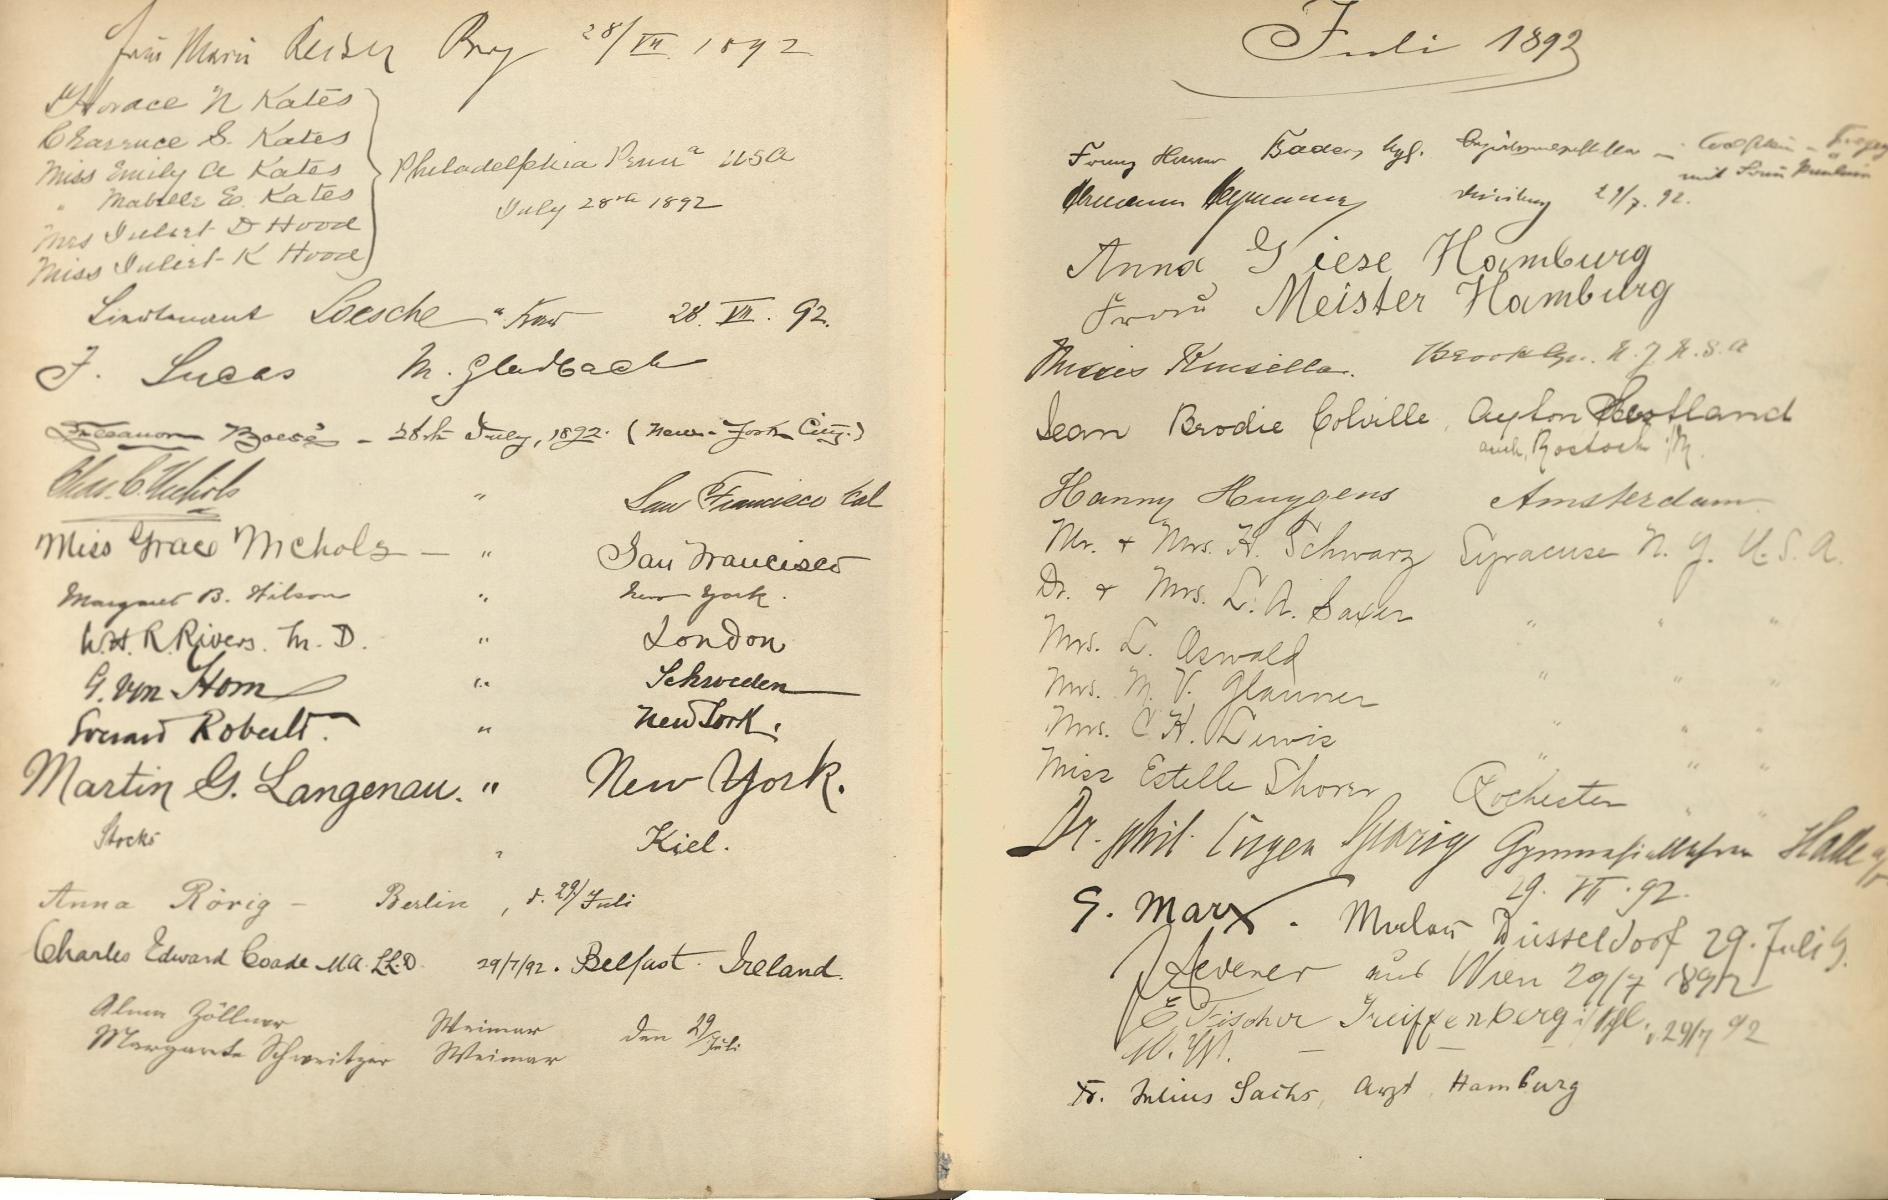 Frau Marie 28/VII 1892
Horace N Kates
Clarence S. Kates
Miss Emily A Kates
" Mabelle E. Kates
Mrs Juliet D Hood
Miss Juliet K Hood
Philadelphia Penn<sup>a</sup> USA
July 28th 1892
Lieutenant Loesche u. Frau 28. VII. 92.
F. Lucas M. Gladbach
28th July, 1892. (New-York City.)
Chas. C. Nichols " San Francisco Cal
Miss Grace Nichols — " San Francisco
Margaret B. Wilson " New York.
W.H.R. Rivers. M.D. " London
G. von Horn " Schweden
Robert. " New York.
Martin G. Langenau. " New York.
Stocks " Kiel.
Anna Rörig – Berlin, d. 29/Juli
Charles Edward Coade MA. LL.D. 29/7/92. Belfast. Ireland.
Alma Zöllner Weimar
Margarete Schweitzer Weimar den 29/Juli
Juli 1892
Franz Bader, kgl.
mit Frau
29/7. 92.
Anna Giese Hamburg
Frau Meister Hamburg
Kinsella. Brooklyn. N.Y U.S.A
Jean Brodie Colville, Ayton Scotland
auch, Rostock i/M.
Hanny Huygens Amsterdam
Mr. + Mrs. H. Schwarz Syracuse N.Y. U.S.A.
Dr. + Mrs. L. A. Saxer " " "
Mrs. L. Oswald " " "
Mrs. M. V. Glauner " " "
Mrs. C H. Lewis " " "
Miss Estelle Shorer Rochester " "
Dr. phil. Eugen Gymnasiallehrer Halle a/S
29. VII. 92.
G. Marx. Maler Düsseldorf 29. Juli 9.
aus Wien 29/7 1892
E. Fischer Greiffenberg i/Schl. 29/7 92
Dr. Julius Sachs, Arzt, Hamburg